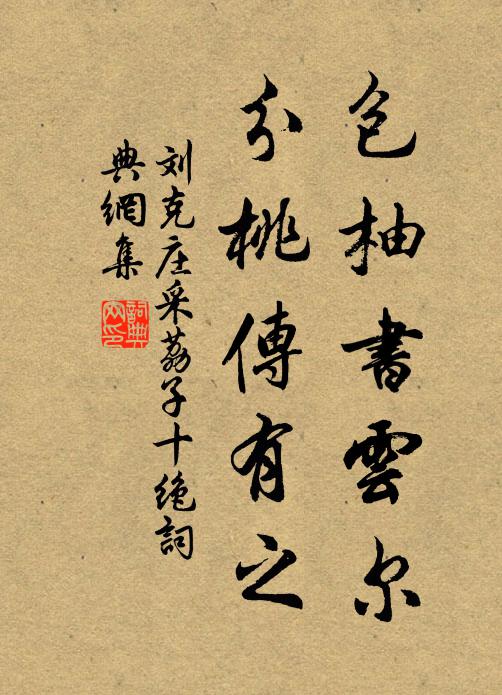 包柚書雲尔
分桃傳有之
刘克庄采荔子十绝詞
典網集
詞典网印